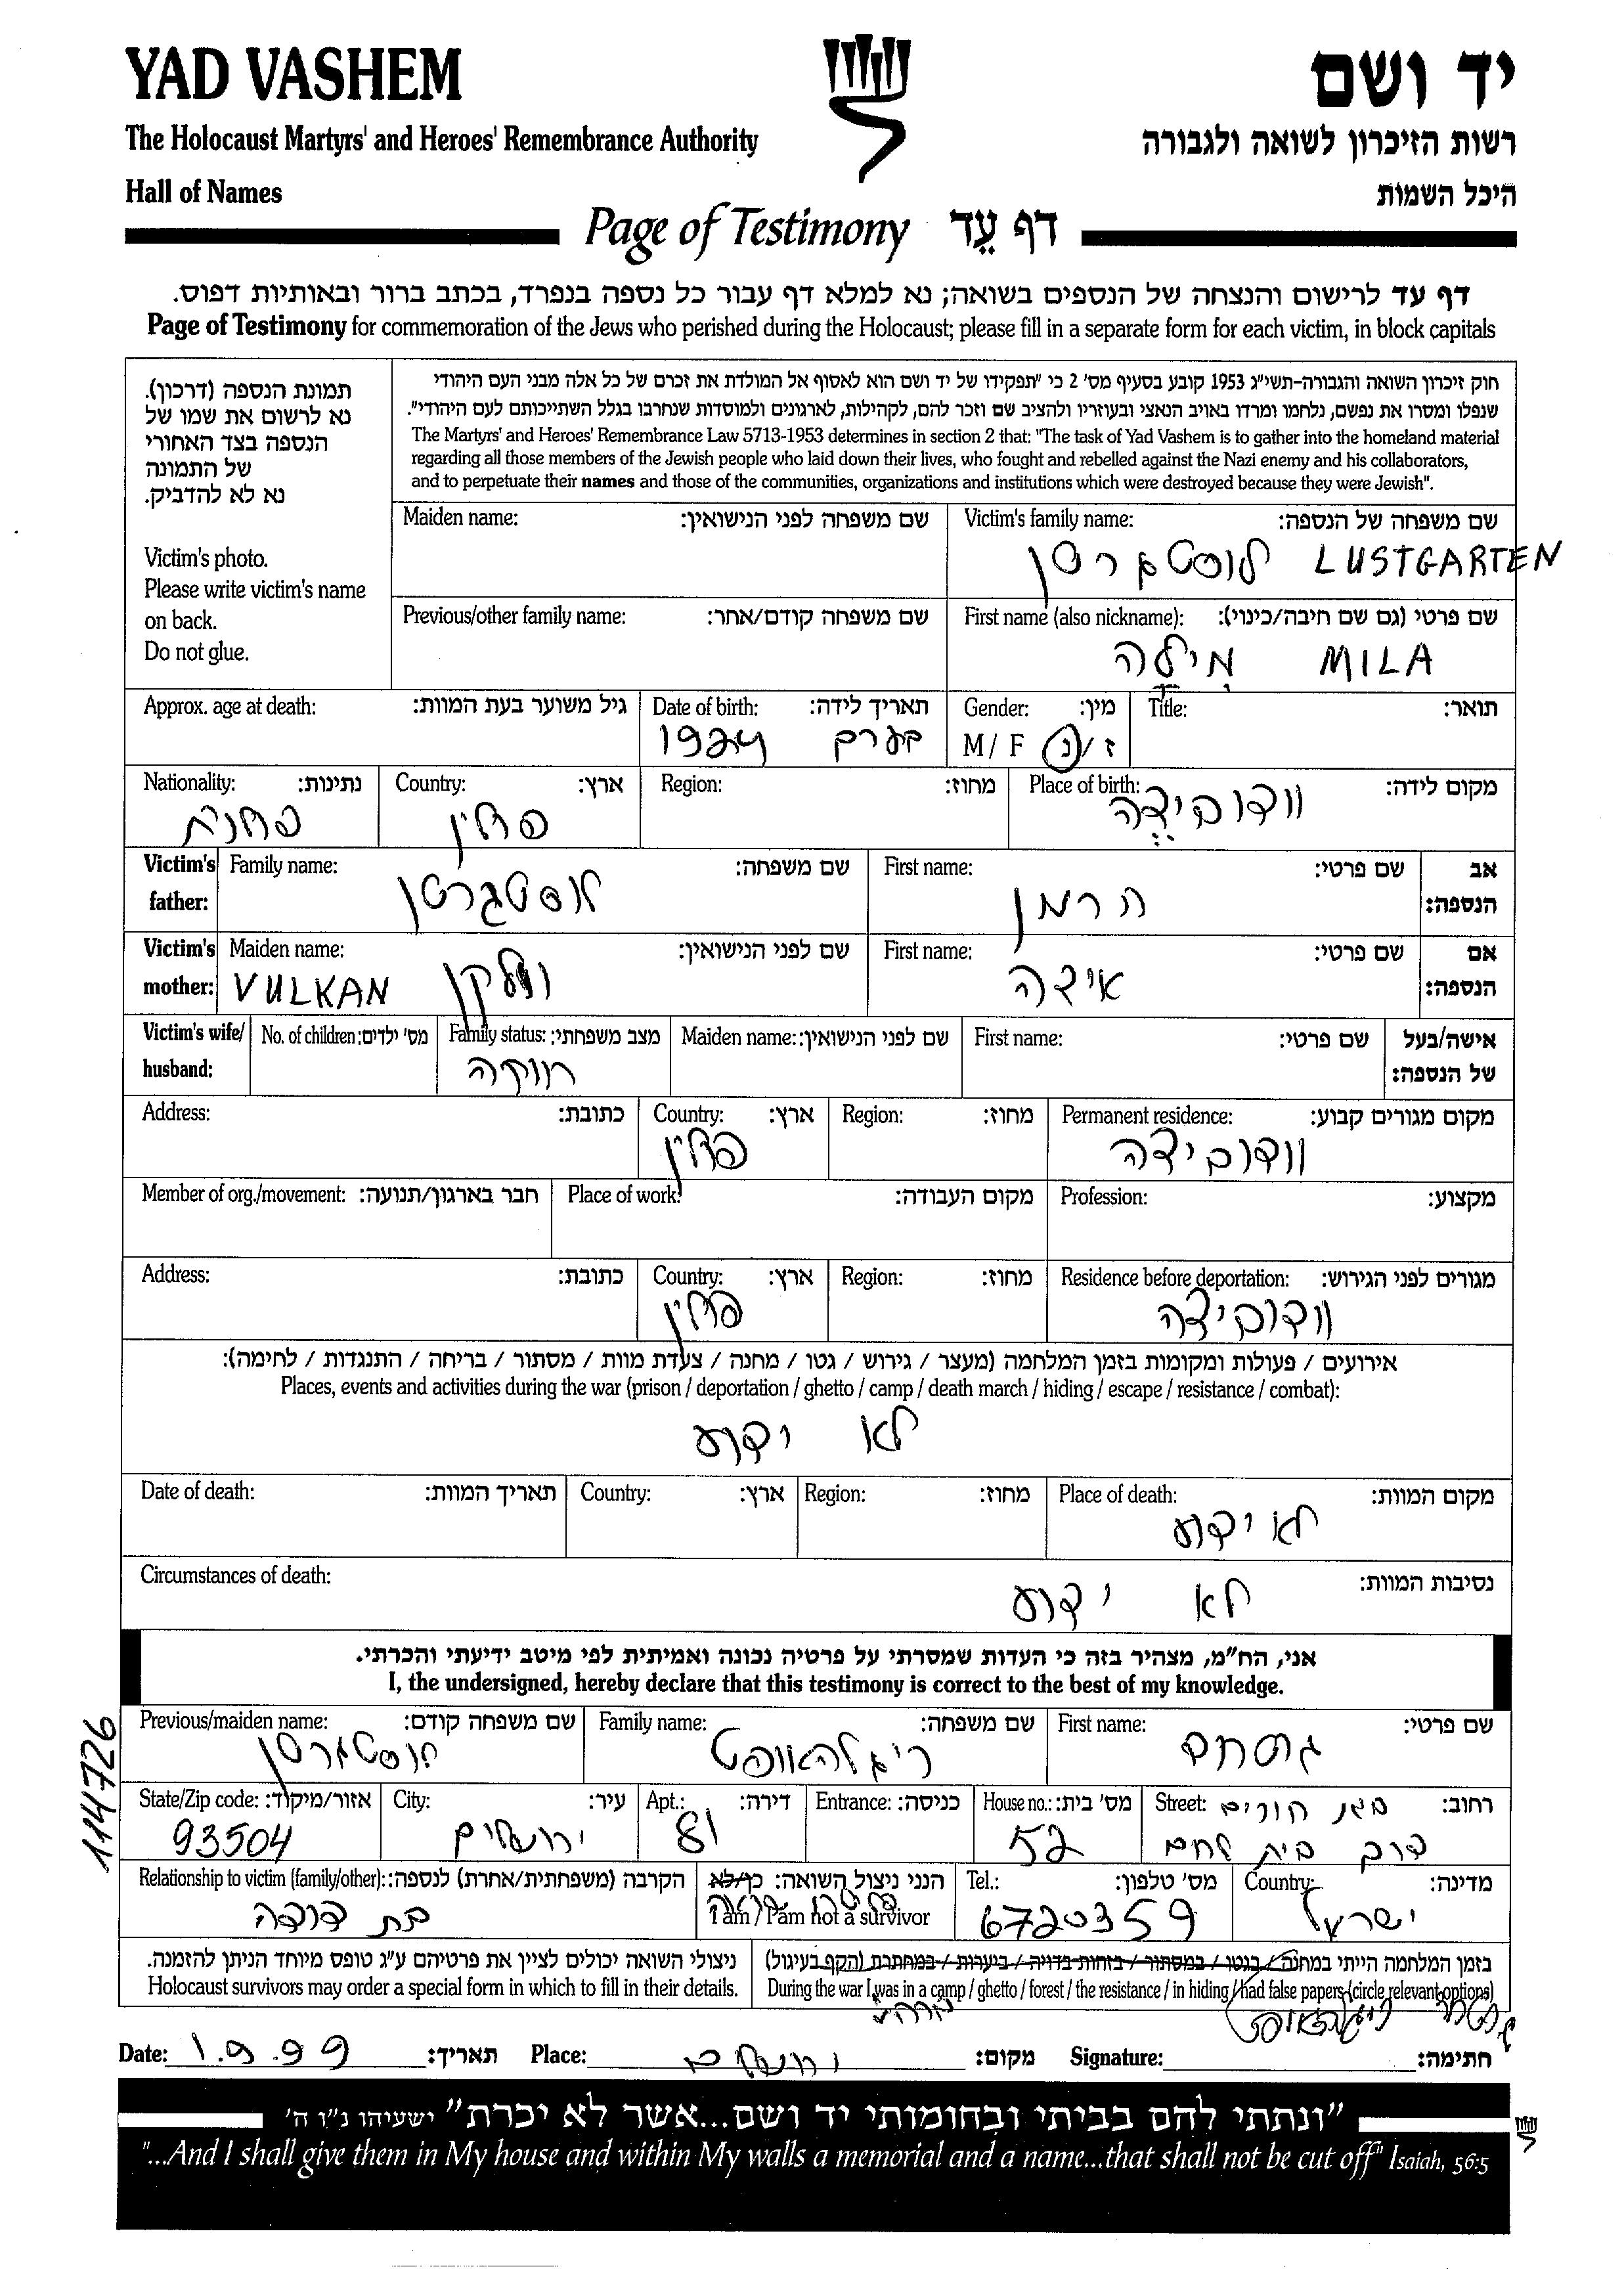 YAD VASHEM
יד ושם
The Holocaust Martyrs' and Heroes' Remembrance Authority
רשות הזיכרון לשואה ולגבורה
Hall of Names
היכל השמות
Page of Testimony דף עֵד
דף עד לרישום והנצחה של הנספים בשואה; נא למלא דף עבור כל נספה בנפרד, בכתב ברור ובאותיות דפוס.
Page of Testimony for commemoration of the Jews who perished during the Holocaust; please fill in a separate form for each victim, in block capitals
תמונת הנספה (דרכון).
נא לרשום את שמו של
הנספה בצד האחורי
של התמונה
נא לא להדביק.
Victim's photo.
Please write victim's name
on back.
Do not glue.
חוק זיכרון השואה והגבורה-תשי"ג 1953 קובע בסעיף מס' 2 כי "תפקידו של יד ושם הוא לאסוף אל המולדת את זכרם של כל אלה מבני העם היהודי
שנפלו ומסרו את נפשם, נלחמו ומרדו באויב הנאצי ובעוזריו ולהציב שם וזכר להם, לקהילות, לארגונים ולמוסדות שנחרבו בגלל השתייכותם לעם היהודי".
The Martyrs' and Heroes' Remembrance Law 5713-1953 determines in section 2 that: "The task of Yad Vashem is to gather into the homeland material
regarding all those members of the Jewish people who laid down their lives, who fought and rebelled against the Nazi enemy and his collaborators,
and to perpetuate their names and those of the communities, organizations and institutions which were destroyed because they were Jewish".
Maiden name: שם משפחה לפני הנישואין:
Victim's family name: שם משפחה של הנספה:
לוסטגרטן LUSTGARTEN
Previous/other family name: שם משפחה קודם/אחר:
First name (also nickname): שם פרטי (גם שם חיבה/כינוי):
מילה MILA
Approx. age at death: גיל משוער בעת המוות:
Date of birth: תאריך לידה:
1924 בערך
Gender: מין:
M / F ז/נ
Title: תואר:
Nationality: נתינות:
פולנית
Country: ארץ:
פולין
Region: מחוז:
Place of birth: מקום לידה:
וודוביצה
Victim's father: Family name: שם משפחה:
לוסטגרטן
First name: שם פרטי:
הרמן
אב הנספה:
Victim's mother: Maiden name: שם לפני הנישואין:
VULKAN וולקן
First name: שם פרטי:
אידה
אם הנספה:
Victim's wife/ husband: No. of children: מס' ילדים:
Family status: מצב משפחתי:
רווקה
Maiden name: שם לפני הנישואין:
First name: שם פרטי:
אישה/בעל של הנספה:
Address: כתובת:
Country: ארץ:
פולין
Region: מחוז:
Permanent residence: מקום מגורים קבוע:
וודוביצה
Member of org./movement: חבר בארגון/תנועה:
Place of work: מקום העבודה:
Profession: מקצוע:
Address: כתובת:
Country: ארץ:
פולין
Region: מחוז:
Residence before deportation: מגורים לפני הגירוש:
וודוביצה
אירועים / פעולות ומקומות בזמן המלחמה (מעצר / גירוש / גטו / מחנה / צעדת מוות / מסתור / בריחה / התנגדות / לחימה):
Places, events and activities during the war (prison / deportation / ghetto / camp / death march / hiding / escape / resistance / combat):
לא ידוע
Date of death: תאריך המוות:
Country: ארץ:
Region: מחוז:
Place of death: מקום המוות:
לא ידוע
Circumstances of death: נסיבות המוות:
לא ידוע
אני, הח"מ, מצהיר בזה כי העדות שמסרתי על פרטיה נכונה ואמיתית לפי מיטב ידיעתי והכרתי.
I, the undersigned, hereby declare that this testimony is correct to the best of my knowledge.
114726
Previous/maiden name: שם משפחה קודם:
לוסטגרטן
Family name: שם משפחה:
ריגלהאופט
First name: שם פרטי:
State/Zip code: אזור/מיקוד:
93504
City: עיר:
ירושלים
Apt.: דירה:
81
Entrance: כניסה:
House no.: מס' בית:
52
Street: רחוב:
חורים
דרך בית לחם
Relationship to victim (family/other): הקרבה (משפחתית/אחרת) לנספה:
בת דודה
הנני ניצול השואה: כן/לא
I am / I am not a survivor
Tel.: מס' טלפון:
6720359
Country: מדינה:
ישראל
ניצולי השואה יכולים לציין את פרטיהם ע"ג טופס מיוחד הניתן להזמנה.
Holocaust survivors may order a special form in which to fill in their details.
בזמן המלחמה הייתי במחנה / בגטו / במסתור / בזהות בדויה / ביערות / במחתרת (הקף בעיגול)
During the war I was in a camp / ghetto / forest / the resistance / in hiding / had false papers (circle relevant options)
Date: 1.9.99 תאריך:
Place: ירושלים מקום:
Signature: ריגלהאופט חתימה:
"ונתתי להם בביתי ובחומותי יד ושם...אשר לא יכרת" ישעיהו נ"ו ה'
"...And I shall give them in My house and within My walls a memorial and a name...that shall not be cut off" Isaiah, 56:5